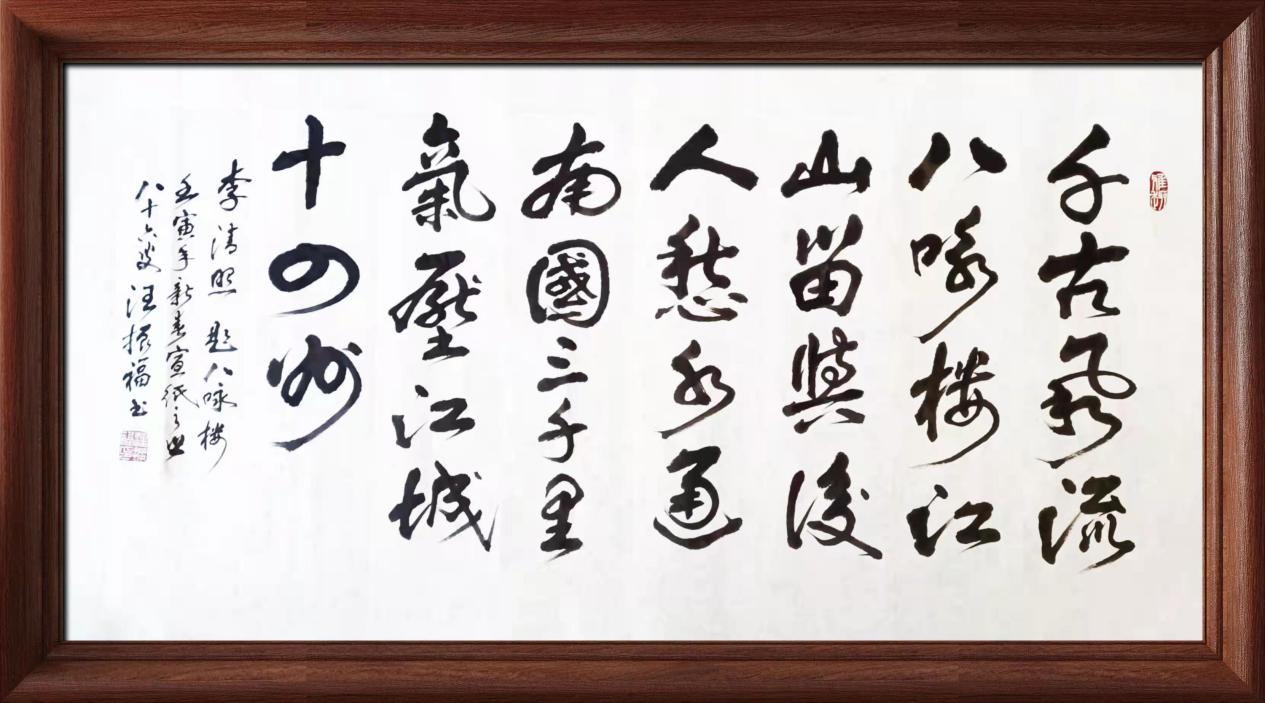 千古風流
八咏楼江
山留與後
人愁水通
南國三千里
氣壓江城
十四州
李清照 题八咏楼
壬寅年新春宣纸之
八十六叟汪振福书